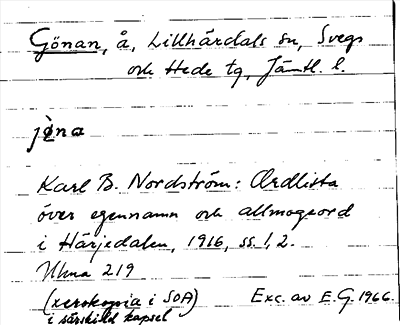 Gönan, å, Lillhärdals sn, Svegs
och Hede tg, Jämtl. l.
jèna
Karl B. Nordström: Ordlista
över egennamn och allmogeord
i Härjedalen, 1916, ss. 1, 2.
Ulma 219
(xerokopia i SOA)
i särskild kapsel
Exc. av E.G. 1966.